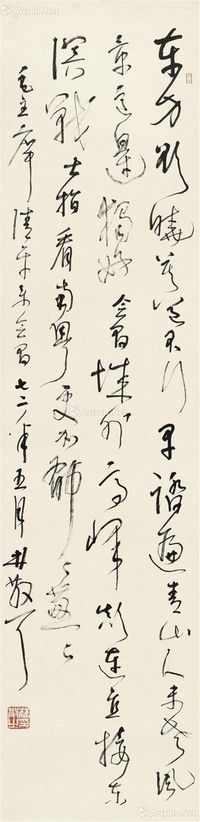 东方欲曉莫道君行早踏遍青山人未老風
景這邊獨好会昌城外高峰颠連直接东
溟戰士指看南粤更加郁〻葱〻
毛主席清平乐会昌七二年五月林散耳